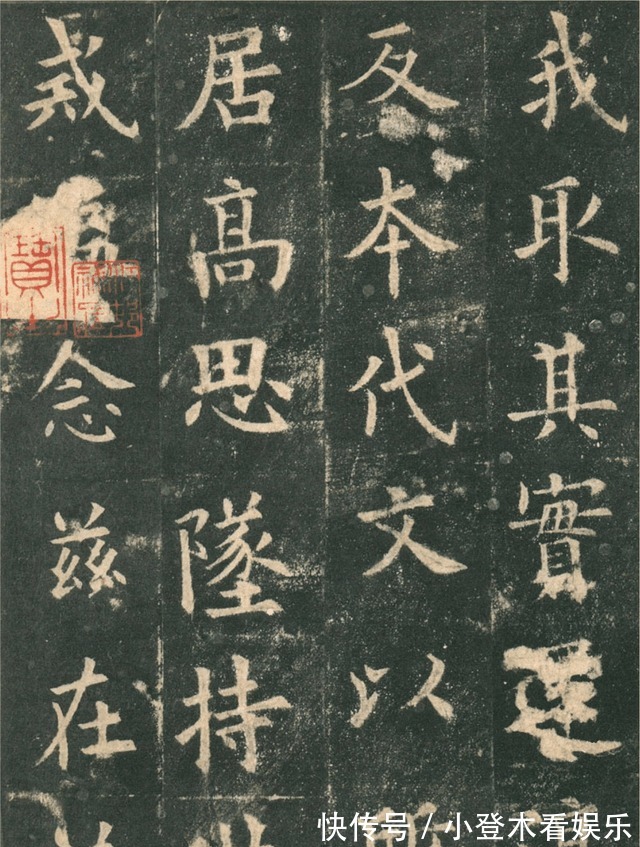 我取其實還
反本代文以
居髙思墜持
戒念茲在
快传号 / 小登木看娱乐